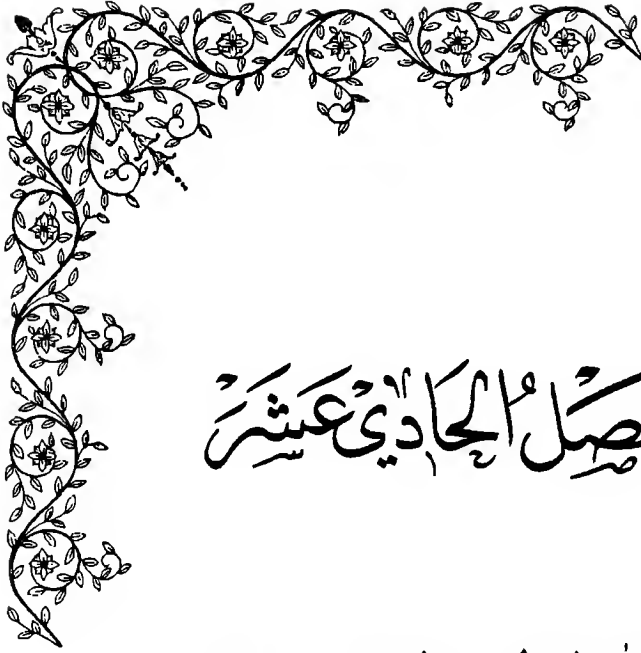 صْلُ الحَادِي عَشَرَ